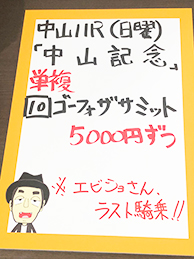 中山11R(日曜)
「中山記念」
単複
10ゴーフォザサミット
5000円ずつ
※エビショさん、
ラスト騎乗!!